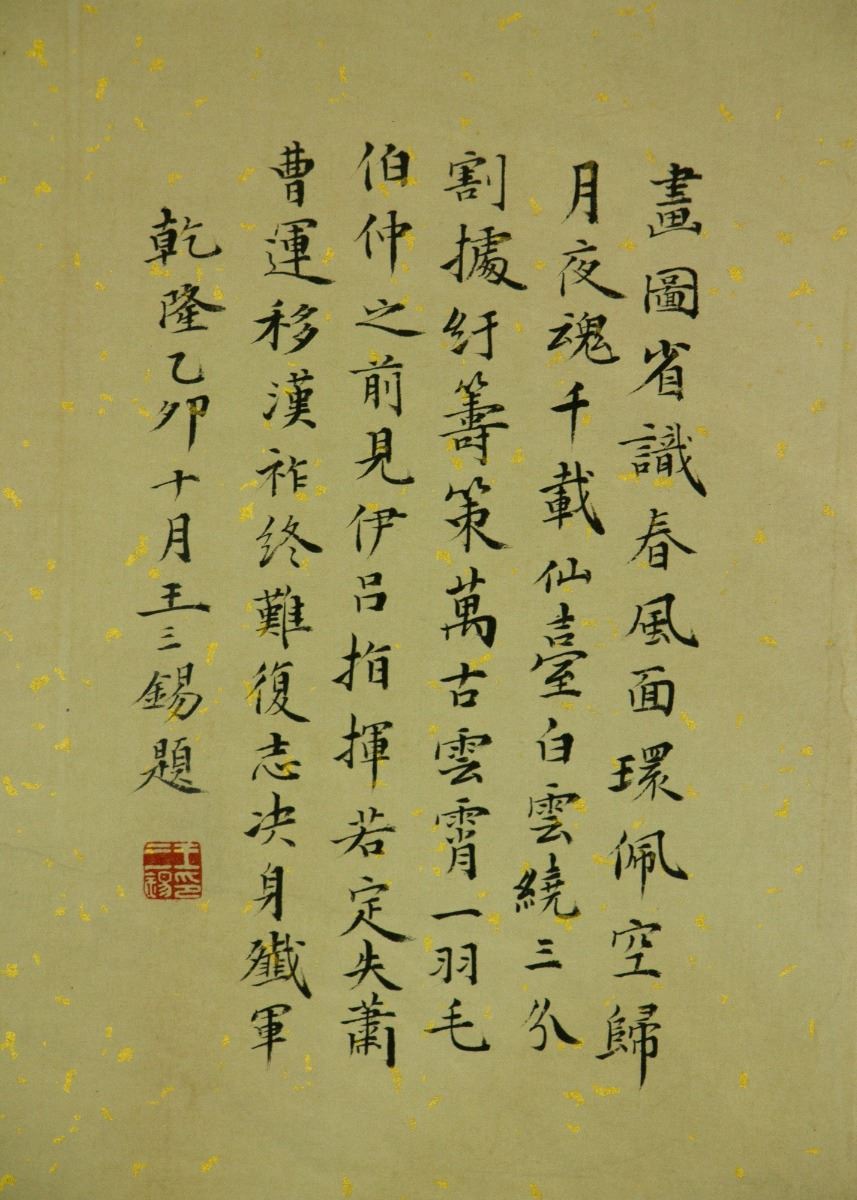 畫圖省識春風面環佩空歸
月夜魂千載仙臺白雲繞三分
割據紆籌策萬古雲霄一羽毛
伯仲之前見伊呂指揮若定失蕭
曹運移漢祚終難復志决身殲軍
乾隆乙卯十月王三錫題
王三錫印